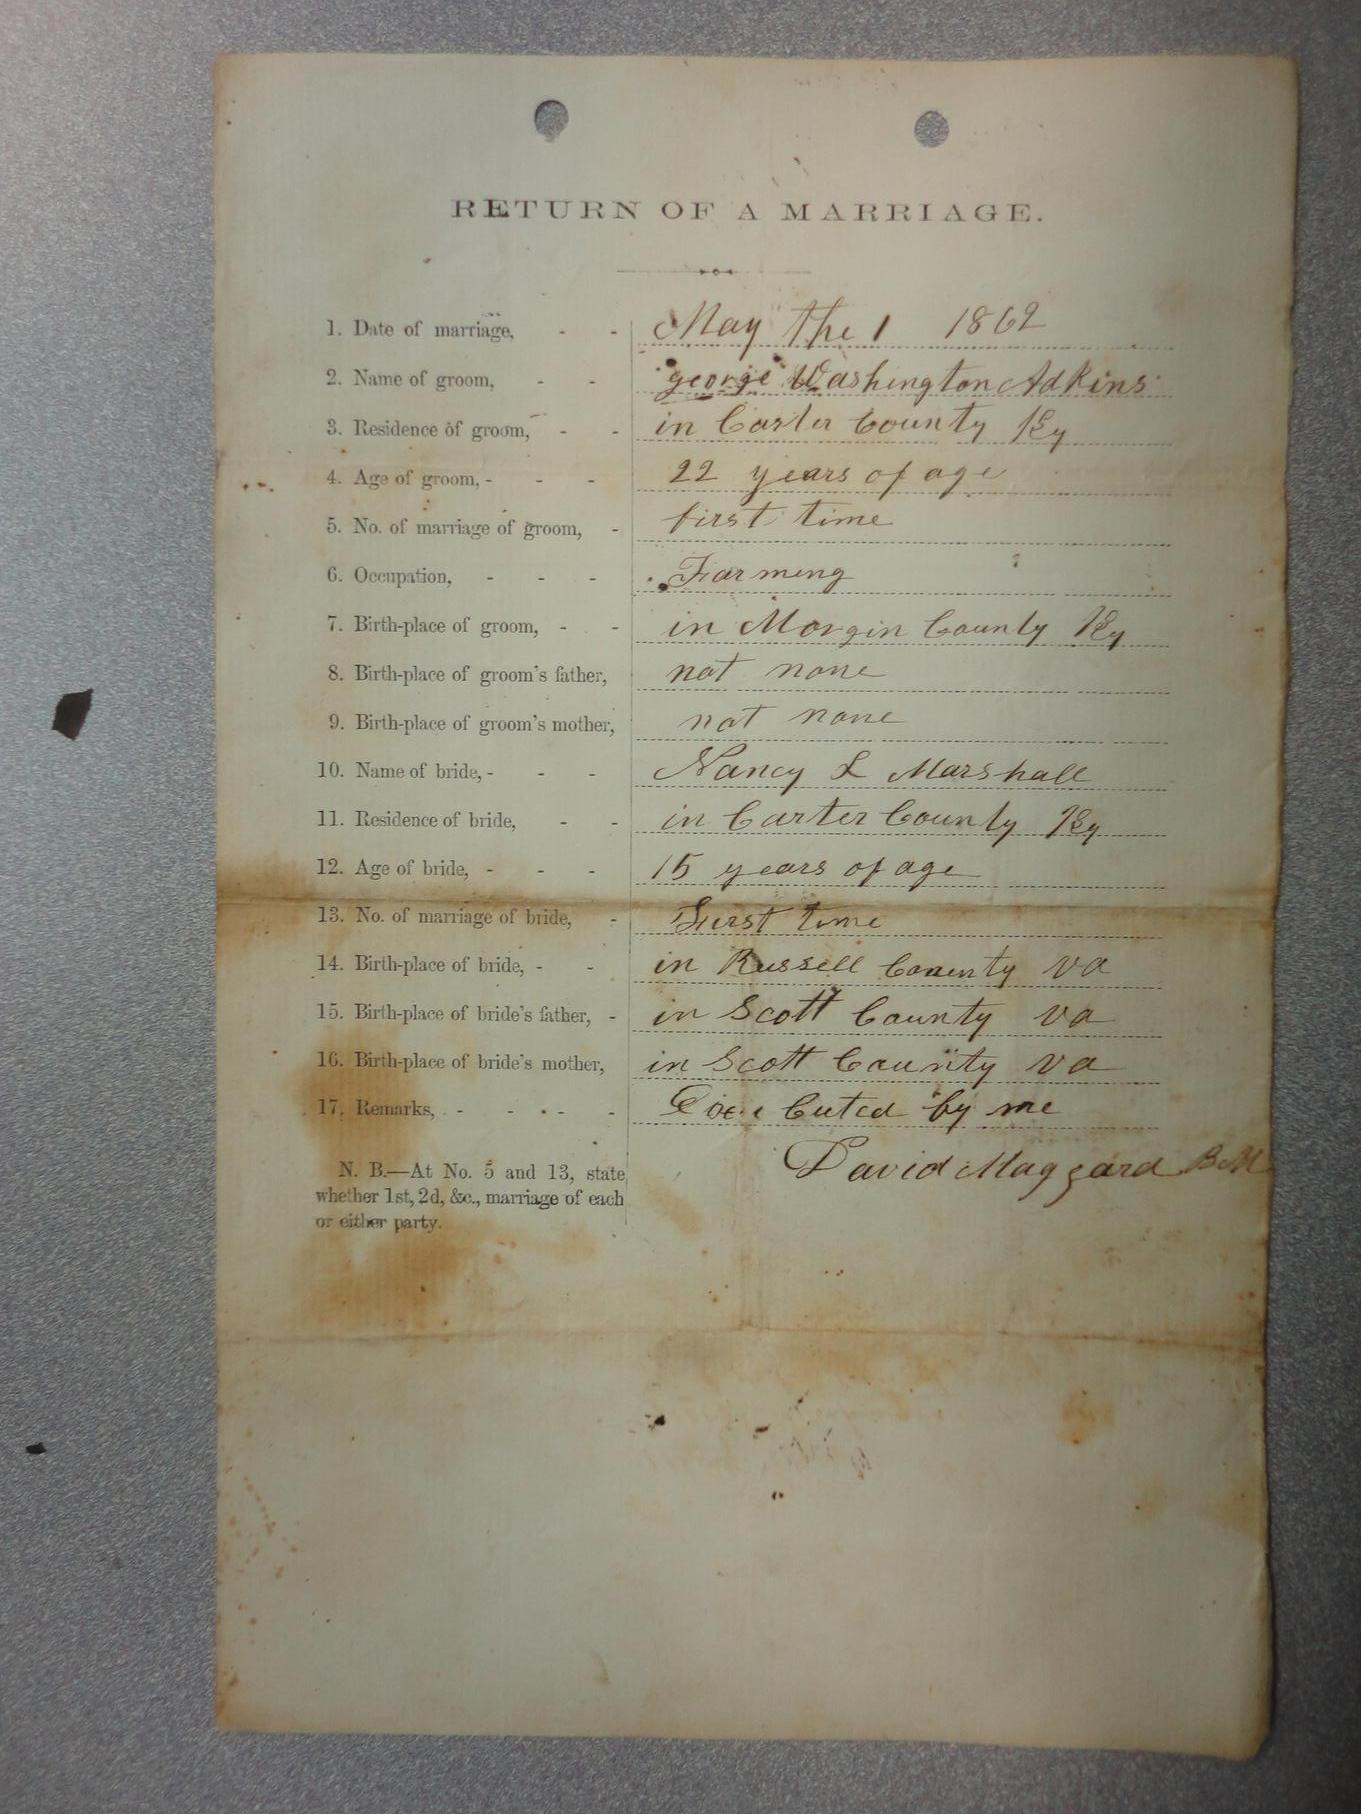 RETURN OF A MARRIAGE.
1. Date of marriage, - - May the 1 1862
2. Name of groom, - - george Washington Adkins
3. Residence of groom, - - in Carter County Ky
4. Age of groom, - - - 22 years of age
5. No. of marriage of groom, - first time
6. Occupation, - - - Farming
7. Birth-place of groom, - - in Morgin County Ky
8. Birth-place of groom's father, not none
9. Birth-place of groom's mother, not none
10. Name of bride, - - - Nancy L Marshall
11. Residence of bride, - - in Carter County Ky
12. Age of bride, - - - 15 years of age
13. No. of marriage of bride, - Furst time
14. Birth-place of bride, - - in Russell County va
15. Birth-place of bride's father, - in Scott County va
16. Birth-place of bride's mother, in Scott County va
17. Remarks, - - - - by me
David Maggard
N. B.—At No. 5 and 13, state
whether 1st, 2d, &c., marriage of each
or either party.